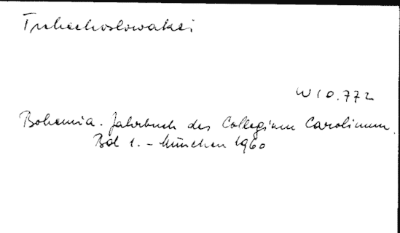 Tschechoslowakei
W 10.772
Bohemia. Jahrbuch des Collegium Carolinum.
Bd 1. - München 1960